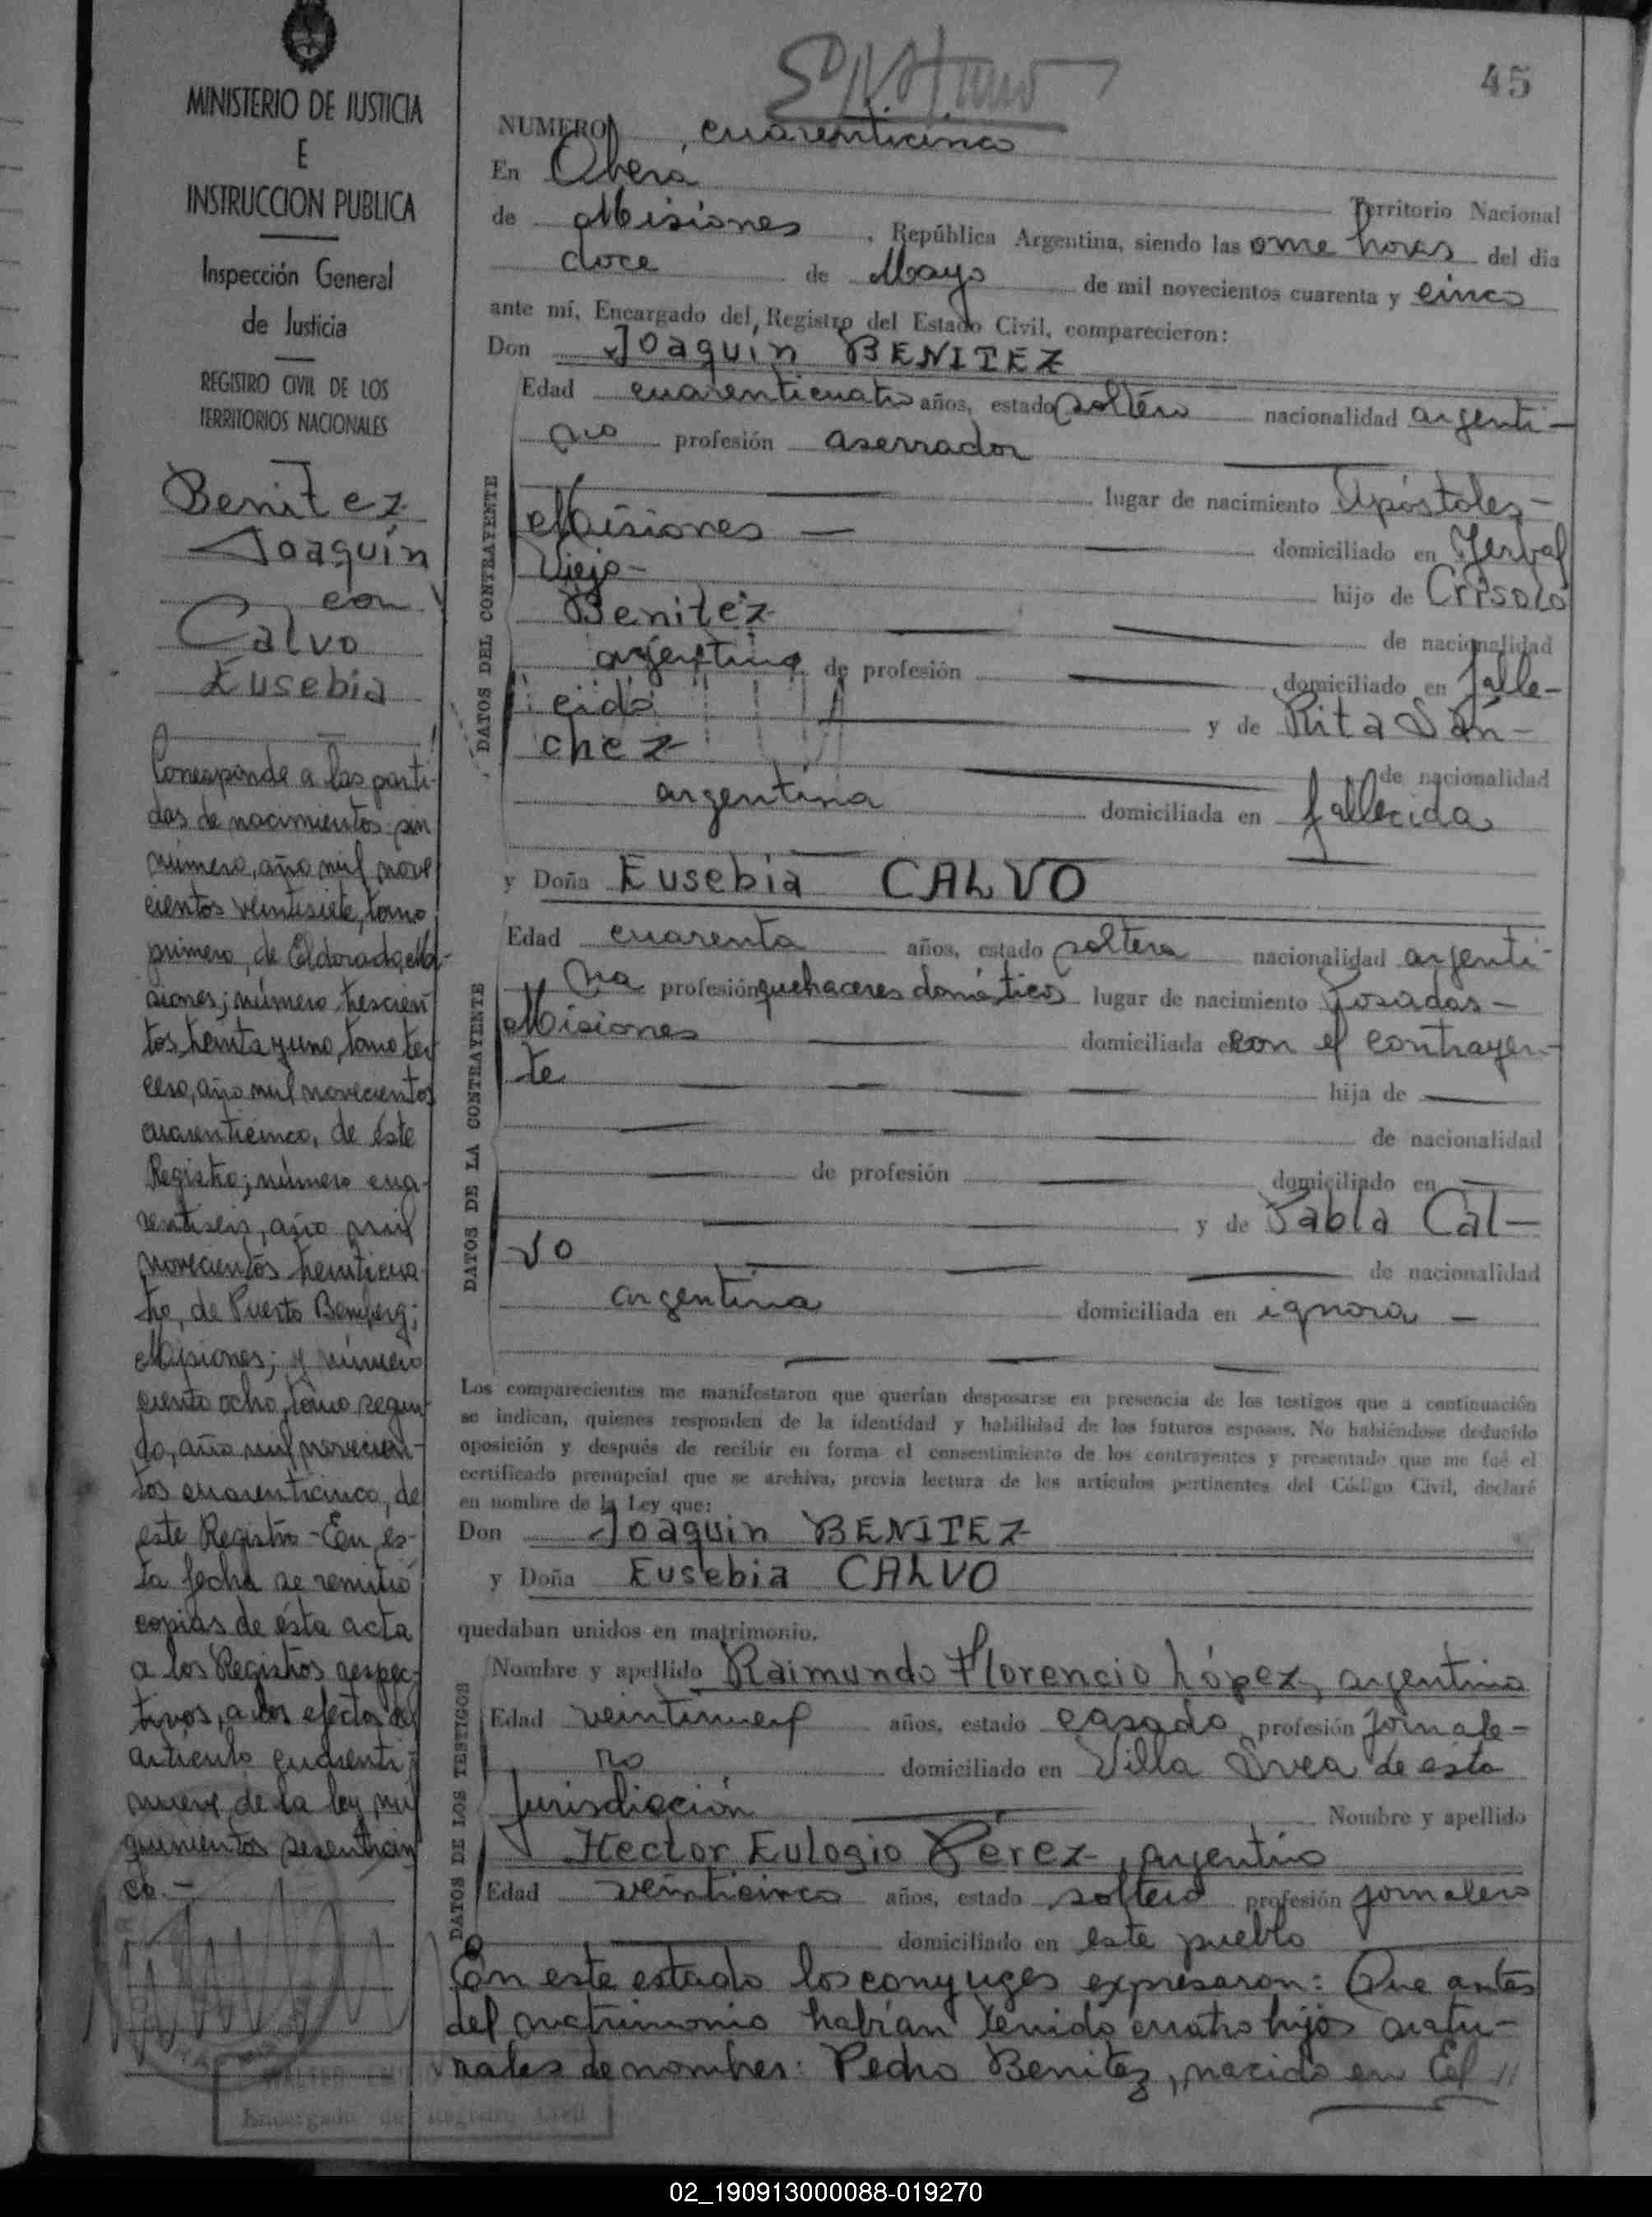 MINISTERIO DE JUSTICIA
E
INSTRUCCION PUBLICA
Inspección General
de Justicia
REGISTRO CIVIL DE LOS
TERRITORIOS NACIONALES
Benitez
Joaquín
con
Calvo
Eusebia
Corresponde a las parti-
das de nacimientos: sin
número, año mil nove
cientos veintisiete, tomo
primero, de Eldorado, Mi-
siones; número trescien
tos treinta y uno, tomo ter
cero, año mil novecientos
cuarenticinco, de éste
Registro; número cua-
rentiseis, año mil
novecientos treinticua-
tro, de Puerto Bemberg;
Misiones; y número
ciento ocho, tomo segun
do, año mil novecien-
tos cuarenticinco, de
este Registro - En es-
ta fecha se remitió
copias de ésta acta
a los Registros respec-
tivos, a los efectos del
artículo cuarenti-
nueve de la ley mil
quinientos sesenticin
co.-
45
NUMERO cuarenticinco
En Oberá Territorio Nacional
de Misiones, República Argentina, siendo las once horas del dia
doce de Mayo de mil novecientos cuarenta y cinco
ante mí, Encargado del Registro del Estado Civil, comparecieron:
Don Joaquín BENITEZ
DATOS DEL CONTRAYENTE
Edad cuarenticuatro años, estado soltero nacionalidad argenti-
no profesión aserrador
lugar de nacimiento Apóstoles-
Misiones — domiciliado en Yerbal
Viejo- hijo de Crisolo
Benitez de nacionalidad
argentino de profesión domiciliado en falle-
cido y de Rita Sán-
chez de nacionalidad
argentina domiciliada en fallecida
y Doña Eusebia CALVO
DATOS DE LA CONTRAYENTE
Edad cuarenta años, estado soltera nacionalidad argenti-
na profesión quehaceres domésticos lugar de nacimiento Posadas-
Misiones domiciliada con el contrayen-
te hija de
de nacionalidad
de profesión domiciliado en
y de Pabla Cal-
vo de nacionalidad
argentina domiciliada en ignora -
Los comparecientes me manifestaron que querían desposarse en presencia de los testigos que a continuación
se indican, quienes responden de la identidad y habilidad de los futuros esposos. No habiéndose deducido
oposición y después de recibir en forma el consentimiento de los contrayentes y presentado que me fué el
certificado prenupcial que se archiva, previa lectura de los artículos pertinentes del Código Civil, declaré
en nombre de la Ley que:
Don Joaquin BENITEZ
y Doña Eusebia CALVO
quedaban unidos en matrimonio.
DATOS DE LOS TESTIGOS
Nombre y apellido Raimundo Florencio López, argentino
Edad veintinueve años, estado casado profesión jornale-
ro domiciliado en Villa Svea de esta
Jurisdicción Nombre y apellido
Hector Eulogio Pérez, argentino
Edad veinticinco años, estado soltero profesión jornalero
domiciliado en este pueblo
En este estado los conyuges expresaron: Que antes
del matrimonio habían tenido cuatro hijos natu-
rales de nombres: Pedro Benitez, nacido en El //
Encargado del Registro Civil
02_190913000088-019270